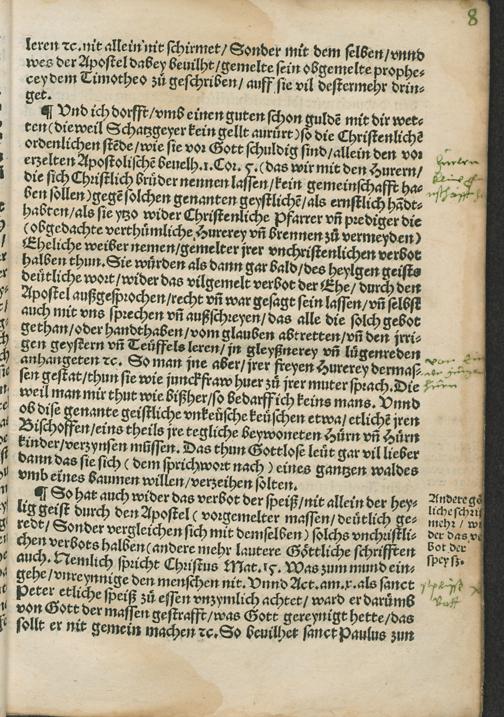 8
leren ⁊c. nit allein nit schirmet / Sonder mit dem selben / vnnd
wes der Apostel dabey beuilht / gemelte sein obgemelte prophe-
cey dem Timotheo zů geschriben / auff sie vil destermehr drin-
get.
¶ Vnd ich dorfft / vmb einen guten schon guldẽ mit dir wet-
ten (dieweil Schatzgeyer kein gellt anrürt) so die Christenlichẽ
ordenlichen stẽde / wie sie vor Gott schuldig sind / allein den vor
erzelten Apostolischẽ beuelh. 1. Cor. 5. (das wir mit den Hurern /
die sich Christlich brüder nennen lassen / kein gemeinschafft ha-
ben sollen) gegẽ solchen genanten geystlichẽ / als ernstlich hãdt-
habten / als sie ytzo wider Christenliche Pfarrer vñ prediger die
(obgedachte verthümliche Hurerey vñ brennen zů vermeyden)
Eheliche weiber nemen / gemelter jrer vnchristenlichen verbot
halben thun. Sie würden als dann gar bald / des heylgen geists
deütliche wort / wider das vilgemelt verbot der Ehe / durch den
Apostel außgesprochen / recht vñ war gesagt sein lassen / vñ selbst
auch mit vns sprechen vñ außschreyen / das alle die solch gebot
gethan / oder handthaben / vom glauben abtretten / vñ den jrri-
gen geystern vñ Teüffels leren / jn gleyßnerey vñ lügenreden
anhangeten ⁊c. So man jne aber / jrer freyen Hurerey dermas-
sen gestat / thun sie wie junckfraw huer zů jrer muter sprach. Die
weil man mir thut wie bißher / so bedarff ich keins mans. Vnnd
ob dise genante geistliche vnkeüsche keüschen etwa / etlichẽ jren
Bischoffen / eins theils jre tegliche beywoneten Hürn vñ Hürn
kinder / verzynsen müssen. Das thun Gottlose leüt gar vil lieber
dann das sie sich (dem sprichwort nach) eines gantzen waldes
vmb eines baumen willen / verzeihen solten.
¶ So hat auch wider das verbot der speiß / nit allein der hey-
lig geist durch den Apostel (vorgemelter massen / deütlich ge-
redt / Sonder vergleichen sich mit demselben) solchs vnchristli-
chen verbots halben (andere mehr lautere Göttliche schrifften
auch. Nemlich spricht Christus Mat. 15. Was zum mund ein-
gehe / vnreynige den menschen nit. Vnnd Act. am. x. als sanct
Peter etliche speiß zů essen vnzymlich achtet / ward er darümb
von Gott der massen gestrafft / was Gott gereynigt hette / das
sollt er nit gemein machen ⁊c. So beuilhet sanct Paulus zun
Andere gö
liche schri
mehr / wi
der das v
bot der
speyß.